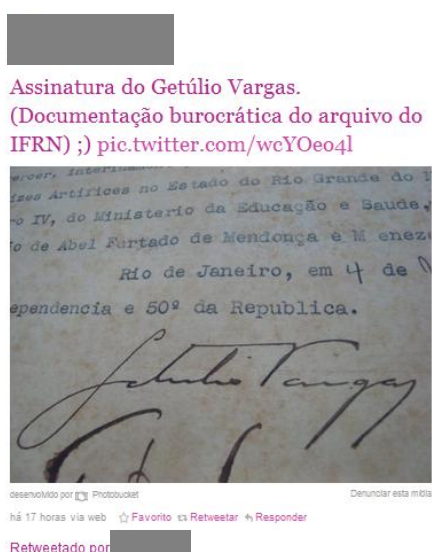 Assinatura do Getúlio Vargas.
(Documentação burocrática do arquivo do
IFRN) ;) pic.twitter.com/wcYOeo4l
ercer, interinamen
izes Artifices no Estado do Rio Grande do
o IV, do Ministerio da Educação e Saude,
o de Abel Furtado de Mendonça e M enez
Rio de Janeiro, em 4 de
ependencia e 50º da Republica.
Getulio Vargas
desenvolvido por Photobucket
Denunciar esta mídia
há 17 horas via web Favorito Retweetar Responder
Retweetado por